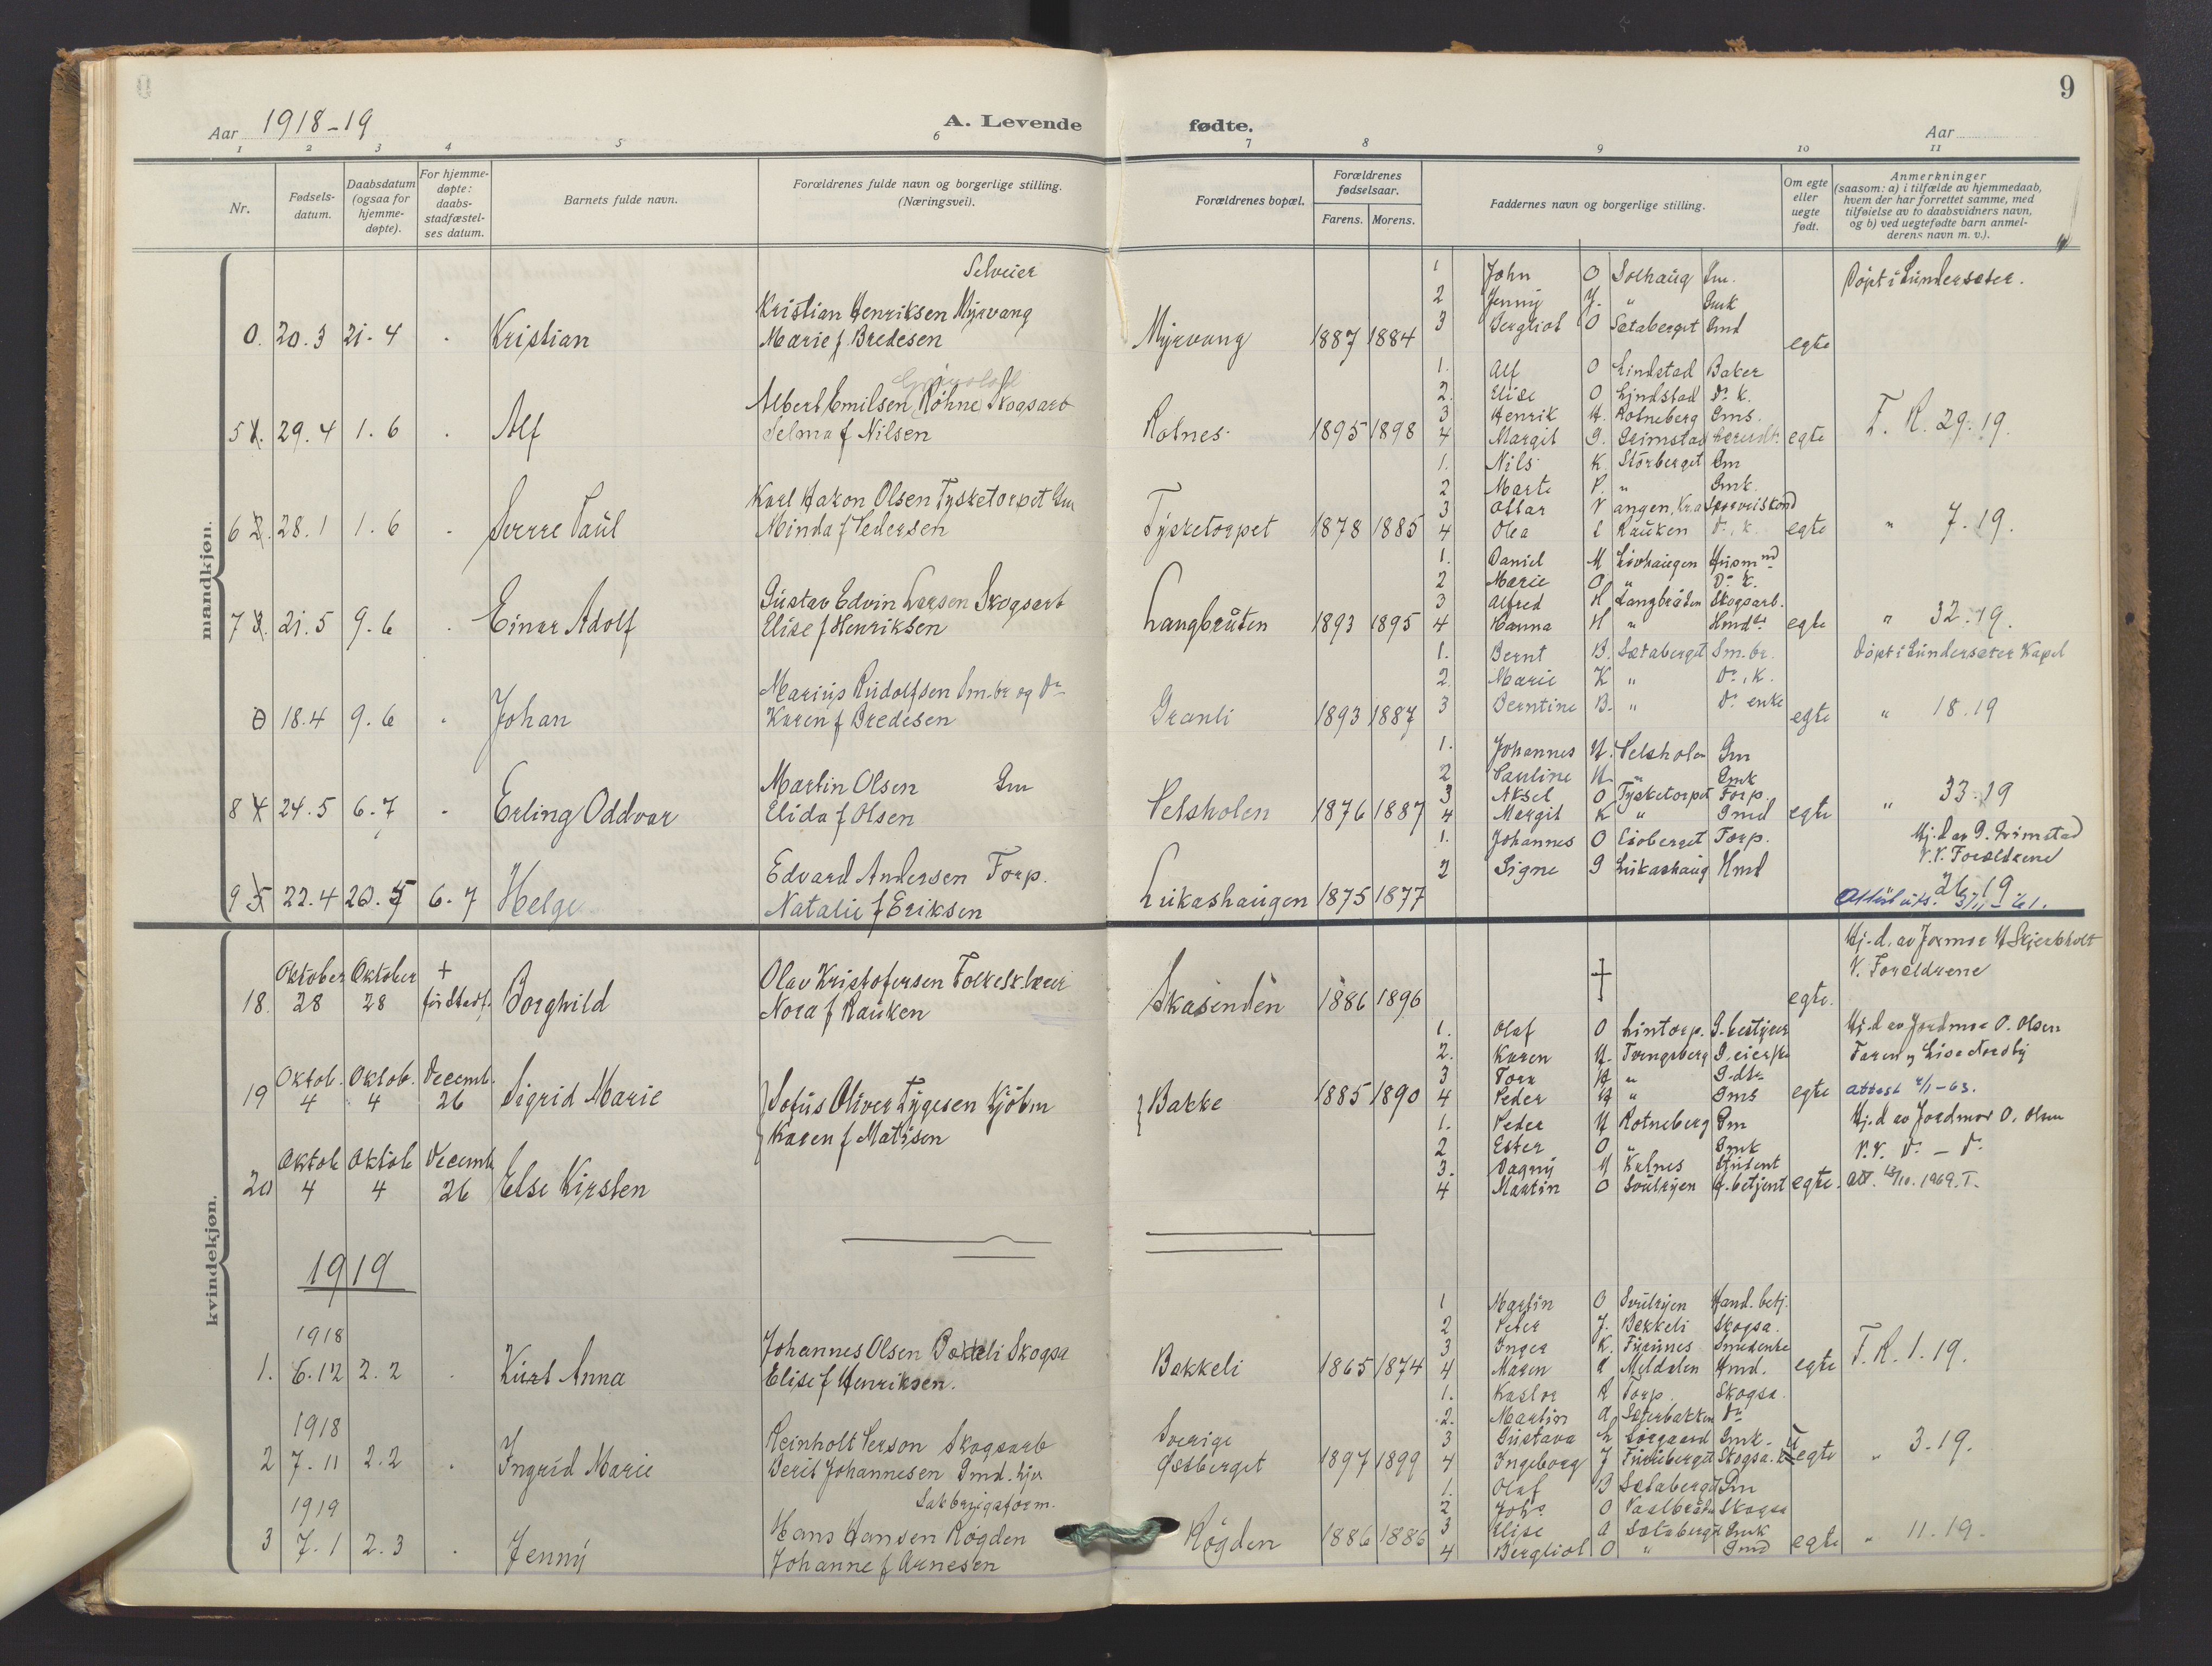 9
Aar 1918-19
A. Levende fødte.
Aar
1 2 3 4 5 6 7 8 9 10 11
Nr.
Fødsels-
datum.
Daabsdatum
(ogsaa for
hjemme-
døpte).
For hjemme-
døpte:
daabs-
stadfæstel-
ses datum.
Barnets fulde navn.
Forældrenes fulde navn og borgerlige stilling.
(Næringsvei).
Forældrenes bopæl.
Forældrenes
fødselsaar.
Farens. Morens.
Faddernes navn og borgerlige stilling.
Om egte
eller
uegte
født.
Anmerkninger
(saasom: a) i tilfælde av hjemmedaab,
hvem der har forrettet samme, med
tilføielse av to daabsvidners navn,
og b) ved uegtefødte barn anmel-
derens navn m. v.).
mandkjøn.
Selveier
0. 20.3 21.4 Kristian
Kristian Henriksen Myrvang
Marie f. Bredesen
Myrvang 1887 1884
1 John O Solhaug Gm.
2 Jenny Y. " Gmk
3 Bergliot O Sætaberget Gmd
egte
Døpt i Lundersæter.
5 1. 29.4 1.6 Alf
Albert Emilsen Røhne Skogsarb
Selma f Nilsen
Rotnes 1895 1898
1. Alf O Lindstad Baker
2. Elise O Lindstad Do k.
3 Henrik H. Rotneberg Gms.
4 Margit G. Grimstad
egte
F. R. 29.19.
6 2. 28.1 1.6 Sverre Paul
Karl Hakon Olsen Tysketorpet Gm
Minda f Pedersen
Tysketorpet 1878 1885
1. Nils K. Storberget Gm
2 Marte P. " Gmk.
3 Ottar V angen, Kr.a
4 Olea E Rauken Do, k.
egte
" 7.19.
7 3. 21.5 9.6 Einar Adolf
Gustav Edvin Larsen Skogsarb
Elise f Henriksen
Langbråten 1893 1895
1. Daniel M Livhaugen Husmnd
2 Marie O " Do k.
3 Alfred H Langbråten Skogsarb.
4 Hanna H "
egte
" 32.19.
0 18.4 9.6 Johan
Marius Rudolfsen Sm.br og Do
Karen f Bredesen
Granli 1893 1887
1. Bernt B. Sætaberget Sm.br.
2. Marie K " Do, k.
3 Berntine B. " Do enke
egte
Døpt i Lundersæter Kapel
" 18.19
8 4 24.5 6.7 Erling Oddvar
Martin Olsen Gm
Elida f Olsen
Velsholen 1876 1887
1. Johannes N. Velsholen Gm
2 Pauline N. " Gmk
3 Aksel O Tysketorpet Forp.
4 Margit K " Gmd
egte
" 33.19
9 5 22.4 20.5 6.7 Helge
Edvard Andersen Forp.
Natalie f Eriksen
Lukashaugen 1875 1877
1. Johannes O Lioberget Forp.
2 Signe G Lukashaug Hmd
Hj.d av G. Grimstad
V.V. Forældrene
26.19.
kvindekjøn.
Oktober Oktober +
18. 28 28 Borghild
Olav Kristofersen Folkesklærer
Nora f Rauken
Skasenden 1886 1896
egte.
Hj.d. av Jormor H Skjerbholt
V. Forældrene
Oktob. Oktob. Decemb.
19 4 4 26 Sigrid Marie
Sofus Oliver Tygesen Kjøbm
Karen f Matisen
Bakke 1885 1890
1. Olaf O Lintorp. G.bestyrer
2. Karen N. Trongsberg G.eierfr.
3 Tora " G.dtr
4 Peder " Gms
egte
Hj.d av Jordmor O. Olsen
Faren og Lise Nordby
attest 4/1-63.
Oktob Oktob Decemb
20 4 4 26 Else Kirsten
1. Peder N Rotneberg Gm
2 Ester O " Gmk
3. Dagny M Kulnes Student
4 Martin O Soulryen H.betjent
egte.
Hj.d av Jordmor O. Olsen
V.V. Do - Do
att. 13/10.1969. T.
1919
1918
1. 6.12 2.2 Kurt Anna
Johannes Olsen Bakkeli Skogsa
Elise f Henriksen.
Bakkeli 1865 1874
1 Martin O Soulryen Hand. betj.
2 Peter J. Bakkeli Skogsa.
3 Inger K. Furunes Smedenke
4 Maren A Meldalen Hmd.
egte
F. R. 1.19.
1918
2 7.11 2.2 Ingrid Marie
Reinholt Person Skogsarb
Berit Johannesen Gmd. hjv
Sverige
Østberget 1897 1899
1. Kastor R Torp. Skogsa.
2. Martin A Sæterbakken Do
3 Gustava L Sørgaard Gmk.
4 Ingeborg J Furuberget Skogsa. k
uegte
" 3.19.
1919
Sakbrugsform.
3 7.1 2.3 Jenny
Hans Hansen Røgden
Johanne f Arnesen
Røgden 1886 1886
1. Olaf B Sætaberget Gm
2 Johs O Vaalbråten Skogsa
3 Elise A Sætaberget Gmk
4 Bergliot O " Gmd
egte
" 11.19.